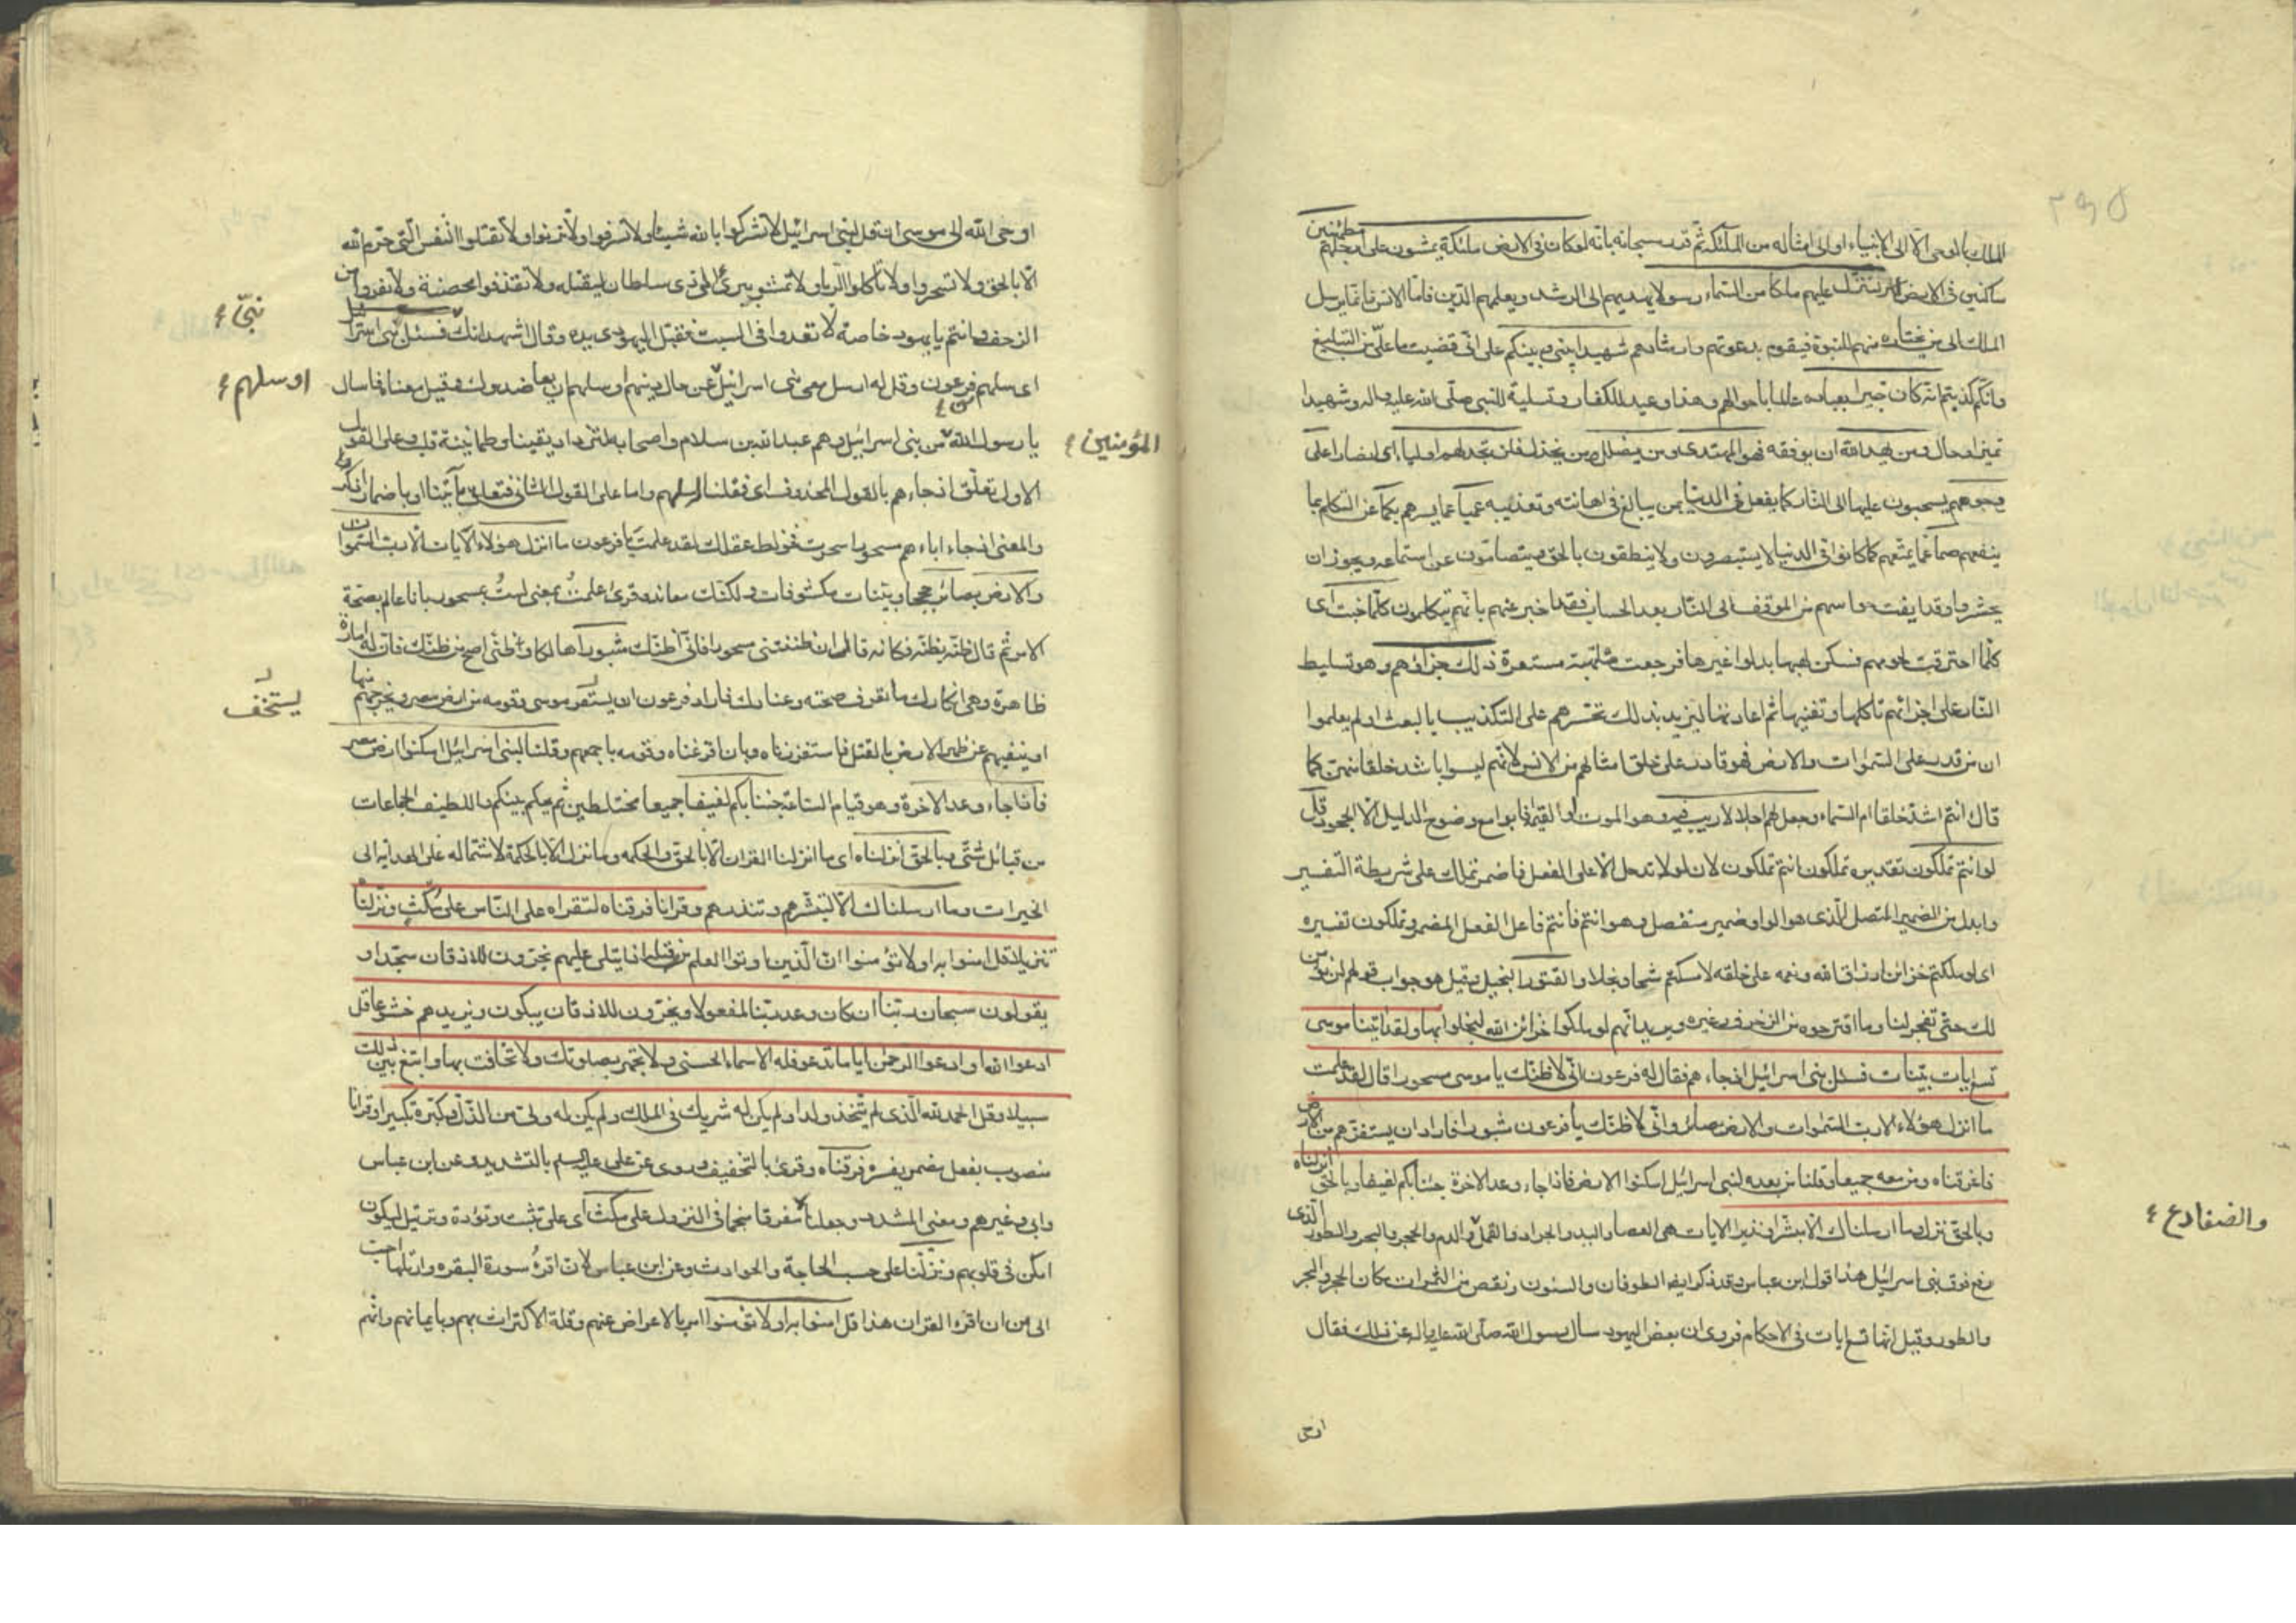 ٢٩٥
الملك بالوحى الّا الى الانبياء او الى امثاله من الملئكة ثم قدر سبحانه بانّه لو كان فى الارض ملئكة يمشون على ارجلهم مطمئنين
ساكنين فى الارض لنزلنا عليهم ملكا من السماء رسولا يهديهم الى الرشد ويعلمهم الدّين فامّا الانس فانّما يرسل
الملك الى من يختاره منهم للنبوة فيقوم بدعوتهم وارشادهم شهيدا بينى وبينكم على انّى قضيت ما علىّ من التبليغ
وانّكم كذبتم انّه كان خبيرا بعباده عالما باحوالهم وهذا وعيد للكفار وتسلية للنبى صلّى الله عليه واله وشهيدا
تميز او حال ومن يهد الله ان يوفقه فهو المهتدى ومن يضلل ومن يخذل فلن تجد لهم اولياء اى انصارا على
وجوههم يسحبون عليها الى النّار كما يفعل فى الدنيا بمن يبالغ فى اهانته وتعذيبه عميا عما يسرهم بكما عن التكلم بما
ينفعهم صما عما يمتعهم كما كانوا فى الدنيا لا يستبصرون ولا ينطقون بالحق ويتصامّون عن استماعه ويجوز ان
يحشروا وقد ايفت حواسهم من الموقف الى النّار بعد الحساب فقد اخبر عنهم بانهم يتكلمون كلّما خبت اى
كلّما احترقت لحومهم فسكن لهبها بدلوا غيرها فرجعت ملتهبة مستعرة ذلك جزاؤهم وهو تسليط
النّار على اجزائهم تاكلها وتفنيها ثم اعادتها ليزيد بذلك تحسّرهم على التكذيب بالبعث اولم يعلموا
ان من قدر على السّموات والارض فهو قادر على خلق امثالهم من الانس لانّهم ليسوا باشد خلقا منهن كما
قال ءانتم اشدّ خلقا ام السّماء وجعل لهم اجلا لا ريب فيه وهو الموت او القيمة فابوا مع وضوح الدليل الّا الجحود قل
لو انتم تملكون تقديره تملكون انتم تملكون لان لو لا تدخل الّا على الفعل فاضمر تملك على شريطة التّفسير
وابدل من الضمير المتصل الّذى هو الواو ضمير منفصل وهو انتم فانتم فاعل الفعل المضمر وتملكون تفسيره
اى لو ملكتم خزائن ارزاق الله ونعمه على خلقه لامسكتم شحا وبخلا والقتور البخيل وقيل هو جواب قولهم لن نؤمن
لك حتّى تفجر لنا وما اقترحوه من الزخرف وغيره ويريد انّهم لو ملكوا خزائن الله لبخلوا بها ولقد اتينا موسى
تسع ايات بيّنات فسئل بنى اسرائيل اذ جاءهم فقال له فرعون انّى لاظنّك يا موسى مسحورا قال لقد علمت
ما انزل هؤلاء الّا ربّ السّموات والارض بصائر وانّى لاظنّك يا فرعون مثبورا فاراد ان يستفزّهم من الارض
فاغرقناه ومن معه جميعا وقلنا من بعده لبنى اسرائيل اسكنوا الارض فاذا جاء وعد الاخرة جئنا بكم لفيفا وبالحق انزلناه
وبالحق نزل وما ارسلناك الّا مبشّرا ونذيرا الايات هى العصا واليد والجراد والقمّل والدم والحجر والبحر والطور الّذى
والضفادع ع
رفع فوق بنى اسرائيل هذا قول ابن عباس وقد ذكر ايضا الطوفان والسنون ونقص من الثمرات مكان الحجر والبحر
والطور وقيل انّها تسع ايات فى الاحكام فروى ان بعض اليهود سال رسول الله صلّى الله عليه واله عن ذلك فقال
اوحى
اوحى الله الى موسى ان قل لبنى اسرائيل لا تشركوا بالله شيئا ولا تسرفوا ولا تزنوا ولا تقتلوا النّفس الّتى حرّم الله
الّا بالحق ولا تسحروا ولا تاكلوا الرّبا ولا تمشوا ببرئ الى ذى سلطان ليقتله ولا تقذفوا محصنة ولا تفروا من
الزحف وانتم يا يهود خاصة لا تعدوا فى السبت فقبّل اليهودى يده وقال اشهد انّك فسئل بنى اسرائيل
نبىّ ع
اى سلهم فرعون وقل له ارسل معى بنى اسرائيل عن حال دينهم او سلهم ان يعاضدوك وقيل معناه فاسال
او سلهم ع
يا رسول الله من بنى اسرائيل وهم عبد الله بن سلام واصحابه لتزداد يقينا وطمانينة قلب وعلى القول
المؤمنين ع
الاول تعلّق اذ جاءهم بالقول المحذوف اى فقلنا له سلهم واما على القول الثانى فيتعلق باتينا او باضمار اذكر
والمعنى اذ جاء اباءهم مسحورا سحرت فخولط عقلك لقد علمت يا فرعون ما انزل هؤلاء الايات الّا رب السّموات
والارض بصائر حججا وبيّنات مكشوفات ولكنّك معاند وقرئ علمتُ بمعنى لستُ بمسحور بل انا عالم بصحّة
الامر ثم قال ظنّه بظنّه فكانه قال ان ظننتنى مسحورا فانّى اظنّك مثبورا هالكا وظنّى اصح من ظنّك فان له امارة
ظاهرة وهى انكارك ما تعرف صحته وعنادك فاراد فرعون ان يستفز موسى وقومه من ارض مصر ويخرجهم منها
يستخف
او ينفيهم عن ظهر الارض بالقتل فاستفززناه وبان اغرقناه وقومه باجمعهم وقلنا لبنى اسرائيل اسكنوا ارض مصر
فاذا جاء وعد الاخرة وهو قيام السّاعة جئنا بكم لفيفا جميعا مختلطين ثم يحكم بينكم واللفيف الجماعات
من قبائل شتّى وبالحق انزلناه اى ما انزلنا القران الّا بالحقّ والحكمه وما نزل الّا بالحكمة لاشتماله على الهداية الى
الخيرات وما ارسلناك الّا لتبشّرهم وتنذرهم وقرانا فرقناه لتقراه على النّاس على مكث ونزلناه
تنزيلا قل امنوا به او لا تؤمنوا انّ الّذين اوتوا العلم من قبله اذا يتلى عليهم يخرون للاذقان سجّدا و
يقولون سبحان ربّنا ان كان وعد ربّنا لمفعولا ويخرّون للاذقان يبكون ويزيدهم خشوعا قل
ادعوا الله او ادعوا الرحمن ايا ما تدعو فله الاسماء الحسنى ولا تجهر بصلوتك ولا تخافت بها وابتغ بين ذلك
سبيلا وقل الحمد لله الّذى لم يتّخذ ولدا ولم يكن له شريك فى الملك ولم يكن له ولى من الذّل وكبّره تكبيرا وقرانا
منصوب بفعل مضمر يفسره فرقناه وقرئ بالتخفيف وروى عن على عليه السلم بالتشديد وعن ابن عباس
وابى وغيرهم ومعنى المشدد وجعلناه مفرقا منجما فى النزول على مكث اى على تثبت وتؤدة وترتيل ليكون
امكن فى قلوبهم ونزّلناه على حسب الحاجة والحوادث وعن ابن عباس لان اقرأ سورة البقره وارتلها احب
الى من ان اقرء القران هذا قل امنوا به او لا تؤمنوا امر بالاعراض عنهم وقلة الاكتراث بهم وبايمانهم وانهم